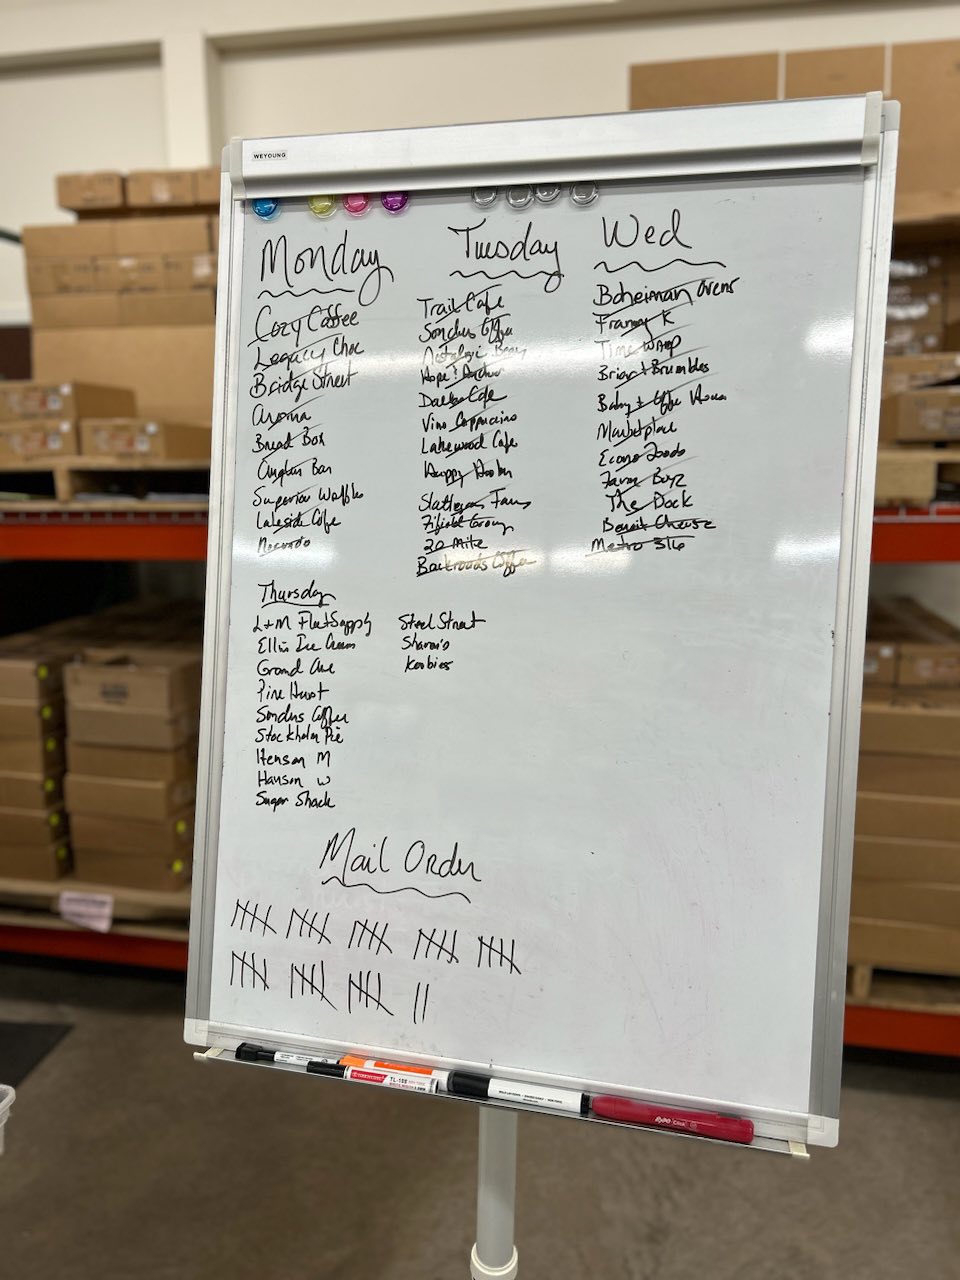 WEYOUNG
Monday
Cozy Coffee
Legacy Choc
Bridge Street
Aroma
Bread Box
Anglers Bar
Superior Waffles
Lakeside Cafe
Tuesday
Trail Cafe
Sondus Coffee
Nostalgic Bean
Hope + Anchor
Cafe
Vino Cappuccino
Lakewood Cafe
Happy
Farms
Group
20 Mile
Backroads Coffee
Wed
Boheiman Ovens
Franny K
Time Warp
Briar + Brumbles
Baby + Coffee House
Marketplace
Econo Foods
Farm Boyz
The Dock
Benoit Cheese
Metro 316
Thursday
L+M Fleet Supply
Ellis Ice Cream
Grand Ave
Pine Hurst
Sondus Coffee
Stockholm Pie
Henson M
Hanson W
Sugar Shack
Steel Street
Sharon's
Koobies
Mail Order
TL-188